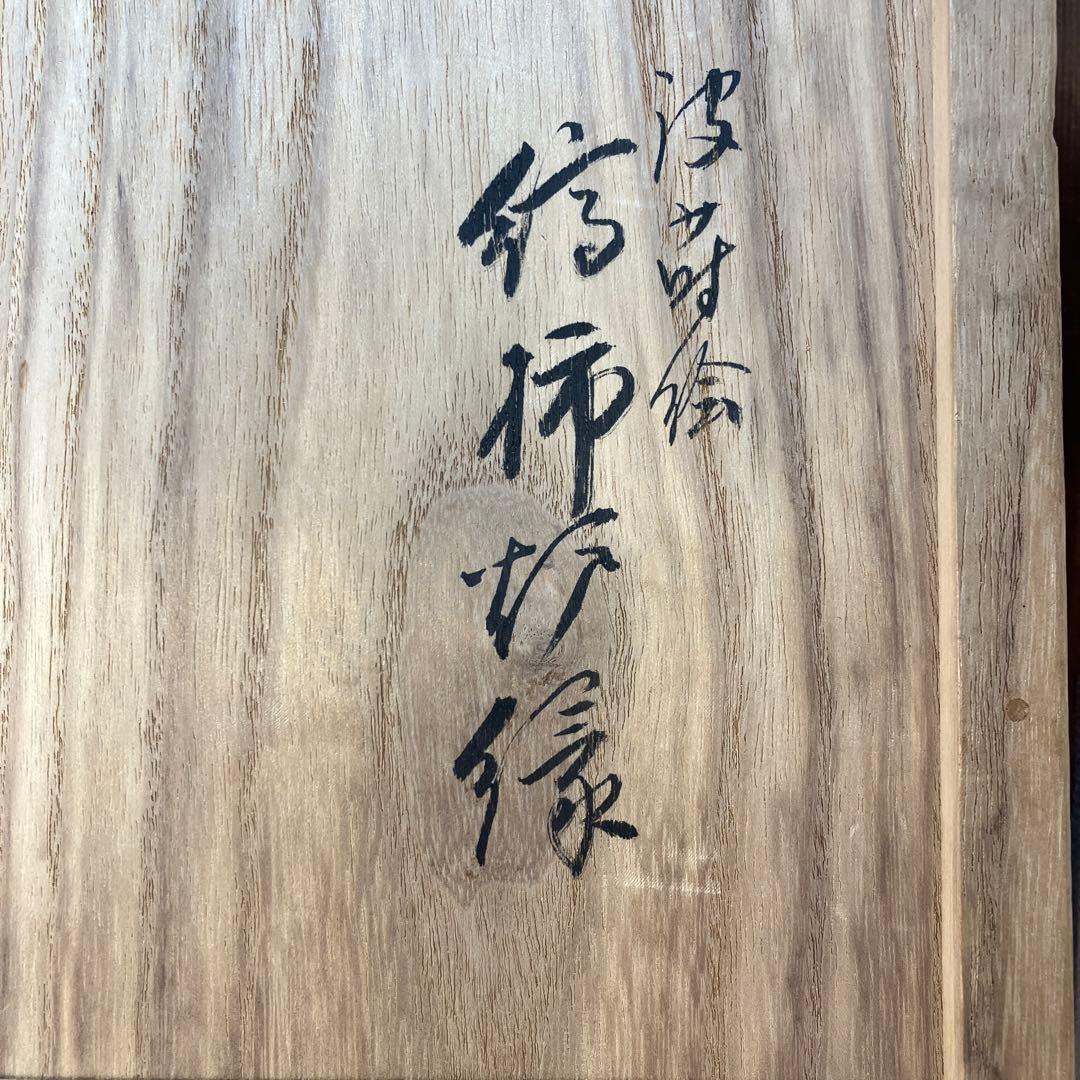 波蒔絵
縞柿炉縁